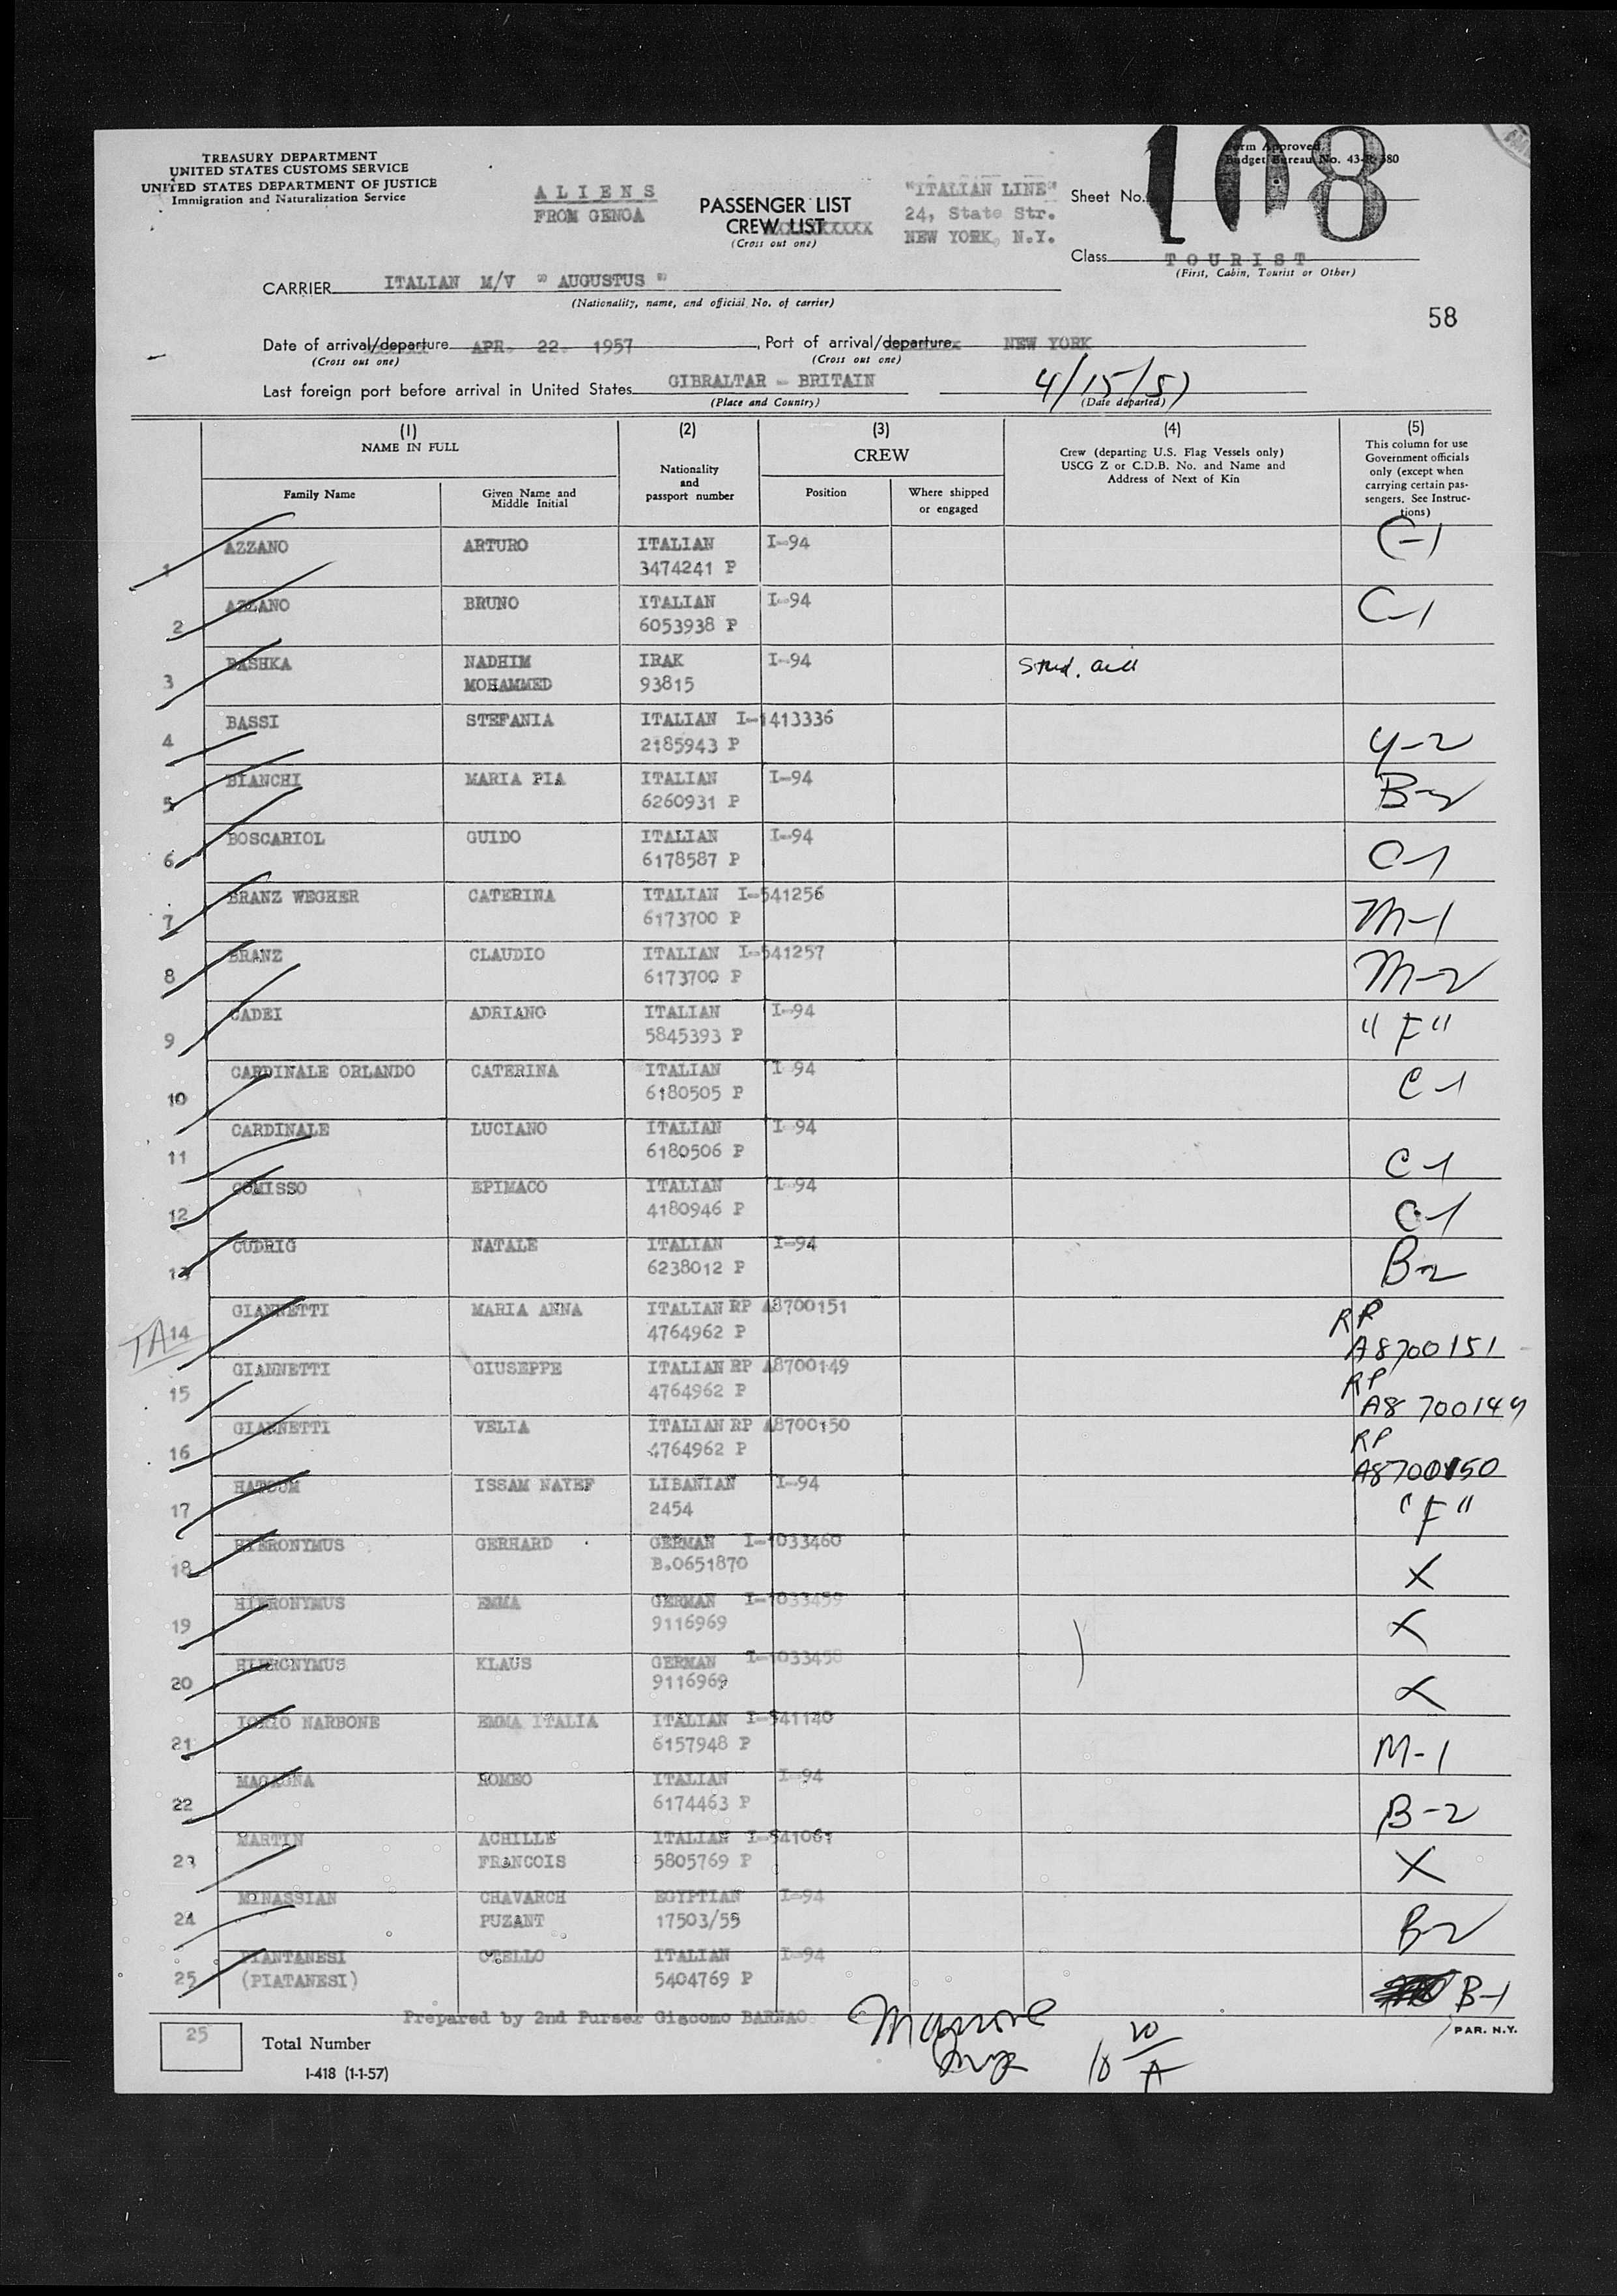 TREASURY DEPARTMENT
UNITED STATES CUSTOMS SERVICE
UNITED STATES DEPARTMENT OF JUSTICE
Immigration and Naturalization Service
ALIENS
FROM GENOA
PASSENGER LIST
CREW LIST
(Cross out one)
"ITALIAN LINE"
24, State Str.
NEW YORK, N.Y.
Form Approved
Budget Bureau No. 43-R-380
Sheet No. 108
Class TOURIST
(First, Cabin, Tourist or Other)
CARRIER ITALIAN M/V " AUGUSTUS "
(Nationality, name, and official No. of carrier)
58
Date of arrival/departure APR. 22. 1957, Port of arrival/departure NEW YORK
(Cross out one) (Cross out one)
Last foreign port before arrival in United States GIBRALTAR - BRITAIN 4/15/57
(Place and Country) (Date departed)
(1) NAME IN FULL
Family Name
Given Name and Middle Initial
(2) Nationality and passport number
(3) CREW
Position
Where shipped or engaged
(4) Crew (departing U.S. Flag Vessels only) USCG Z or C.D.B. No. and Name and Address of Next of Kin
(5) This column for use Government officials only (except when carrying certain passengers. See Instructions)
1 AZZANO ARTURO ITALIAN I-94 C-1
3474241 P
2 AZZANO BRUNO ITALIAN I-94 C-1
6053938 P
3 BASHKA NADHIM IRAK I-94 Stud.
MOHAMMED 93815
4 BASSI STEFANIA ITALIAN I-1413336
2185943 P Y-2
5 BIANCHI MARIA PIA ITALIAN I-94 B-2
6260931 P
6 BOSCARIOL GUIDO ITALIAN I-94 C-1
6178587 P
7 BRANZ WEGHER CATERINA ITALIAN I-541256
6173700 P M-1
8 BRANZ CLAUDIO ITALIAN I-541257
6173700 P M-2
9 CADEI ADRIANO ITALIAN I-94 "F"
5845393 P
10 CARDINALE ORLANDO CATERINA ITALIAN I-94 C-1
6180505 P
11 CARDINALE LUCIANO ITALIAN I-94
6180506 P C-1
12 COMISSO EPIMACO ITALIAN I-94
4180946 P C-1
13 CUDRIG NATALE ITALIAN I-94 B-2
6238012 P
TA 14 GIANNETTI MARIA ANNA ITALIAN RP A8700151 RP
4764962 P A8700151
15 GIANNETTI GIUSEPPE ITALIAN RP A8700149 RP
4764962 P A8700149
16 GIANNETTI VELIA ITALIAN RP A8700150 RP
4764962 P A8700150
17 HATOUM ISSAM NAYEF LIBANIAN I-94 "F"
2454
18 HIERONYMUS GERHARD GERMAN I-1033460
B.0651870 X
19 HIERONYMUS EMMA GERMAN I-1033459
9116969 X
20 HIERONYMUS KLAUS GERMAN I-1033458
9116969 X
21 IORIO NARBONE EMMA ITALIA ITALIAN I-541140
6157948 P M-1
22 MAGAGNA ROMEO ITALIAN I-94
6174463 P B-2
23 MARTIN ACHILLE ITALIAN I-541061
FRANCOIS 5805769 P X
24 MINASSIAN CHAVARCH EGYPTIAN I-94
PUZANT 17503/55 B-2
25 PIANTANESI OTELLO ITALIAN I-94
(PIATANESI) 5404769 P B-1
Prepared by 2nd Purser Giacomo BARNAO
25 Total Number
I-418 (1-1-57)
10 20/A
PAR. N.Y.